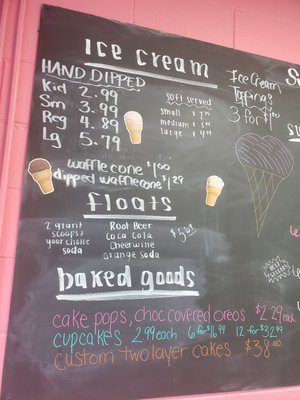 Ice Cream
HAND DIPPED
Kid 2.99
Sm 3.99
Reg 4.89
Lg 5.79
soft served
small
medium
large
Ice Cream
Toppings
3 for $1
waffle cone $1.00
dipped waffle cone $1.29
floats
2 giant
scoops &
your choice
soda
Root Beer
Coca Cola
Cheerwine
Orange Soda
baked goods
cake pops, choc.covered oreos $2.29 each
cupcakes 2.99 each 6 for $16.99 12 for $32.99
custom two layer cakes $38.00